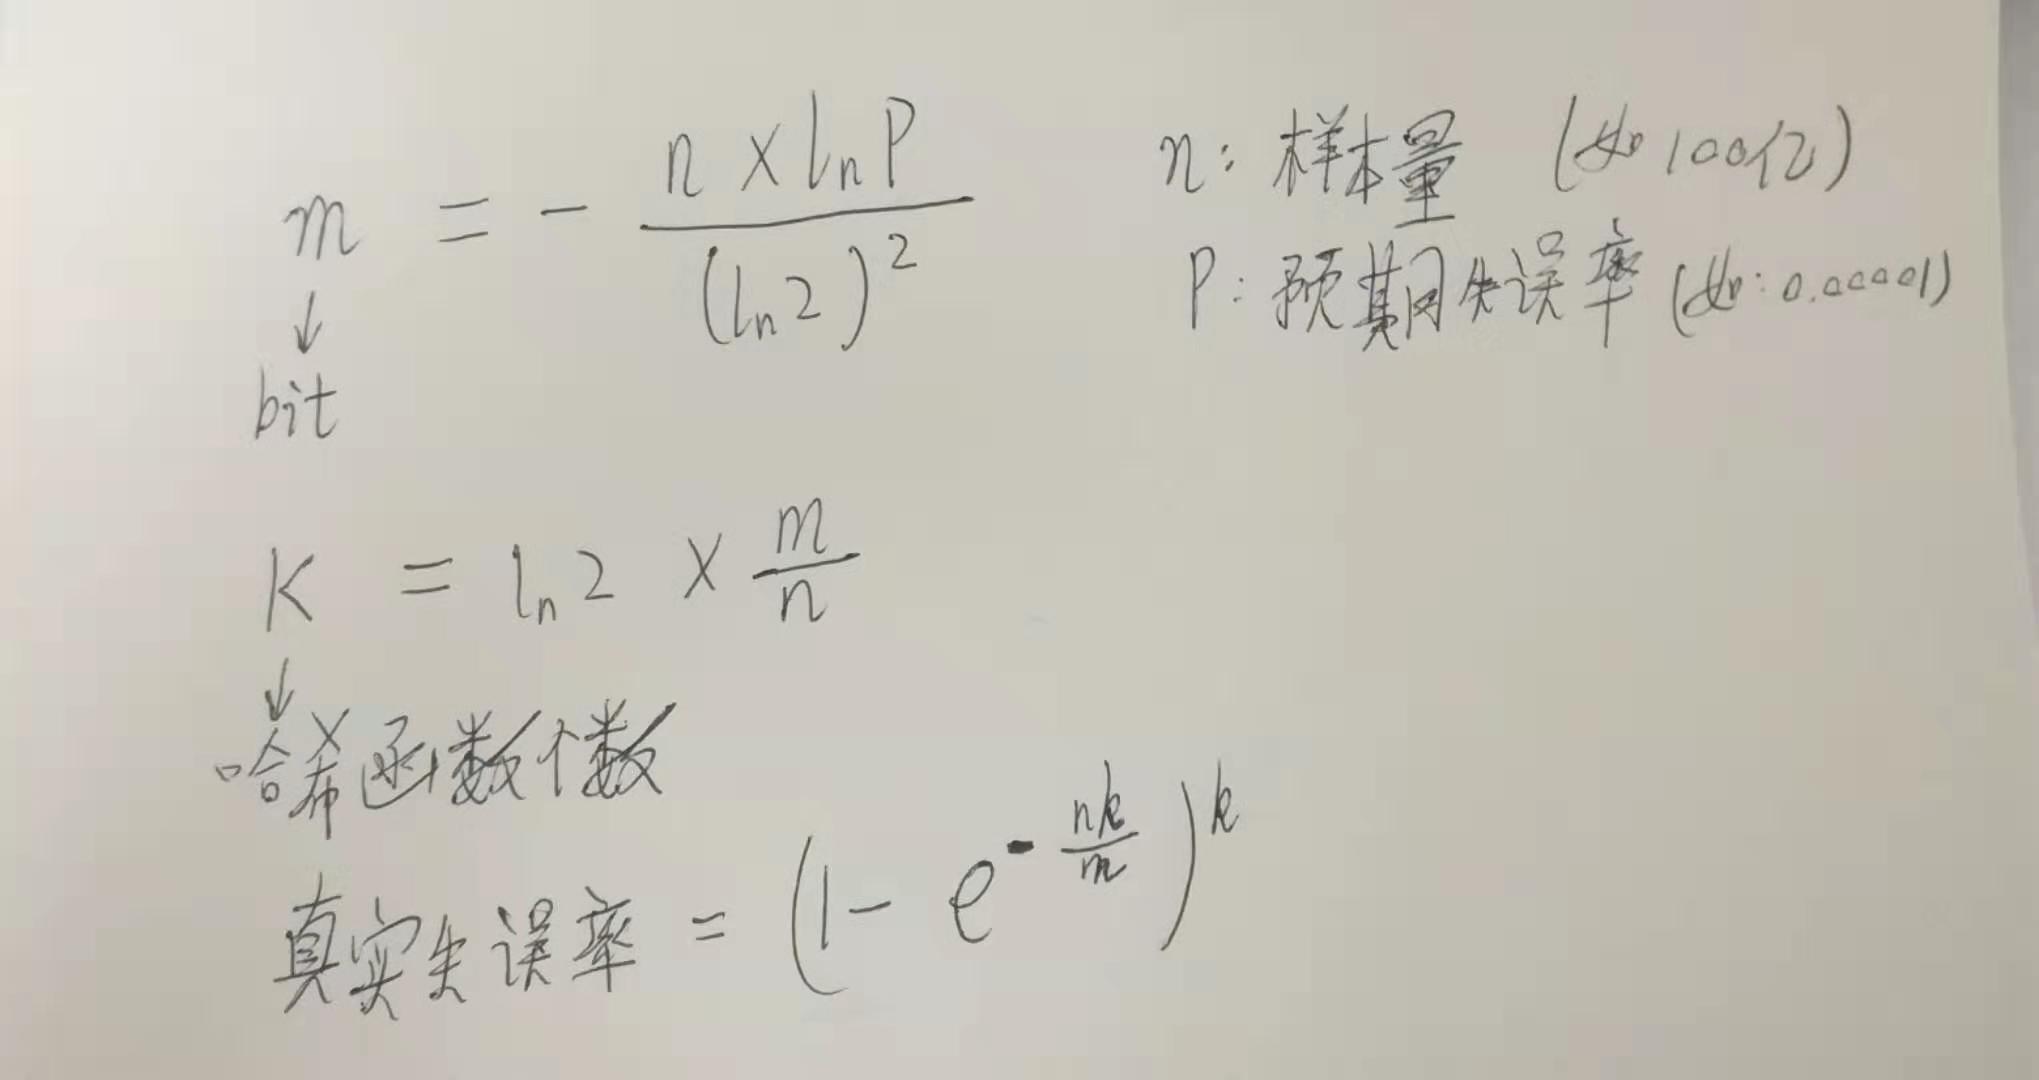 m = - n × ln P / (ln 2)²
n: 样本量 (如 100亿)
P: 预期失误率 (如: 0.00001)
↓
bit
K = ln 2 × m / n
↓
哈希函数个数
真实失误率 = (1 - e^(- nk / m))^k